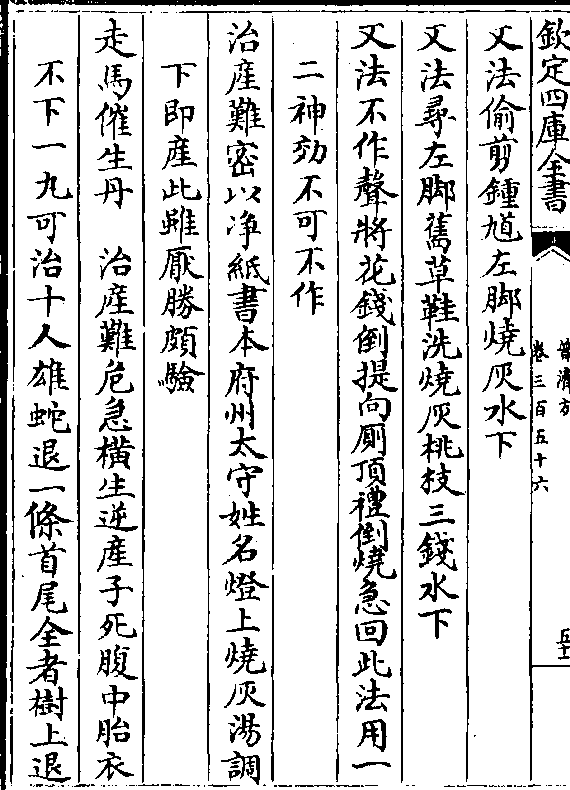 欽定四庫全書
普濟方
卷三百五十六
又法偷剪鍾馗左脚燒灰水下
又法尋左脚舊草鞋洗燒灰桃枝三錢水下
又法不作聲將花錢倒提向厠頂禮倒燒急回此法用一
二神効不可不作
治産難密以净紙書本府州太守姓名燈上燒灰湯調
下即産此雖厭勝頗驗
走馬催生丹　治産難危急横生逆産子死腹中胎衣
不下一丸可治十人雄蛇退一條首尾全者樹上退